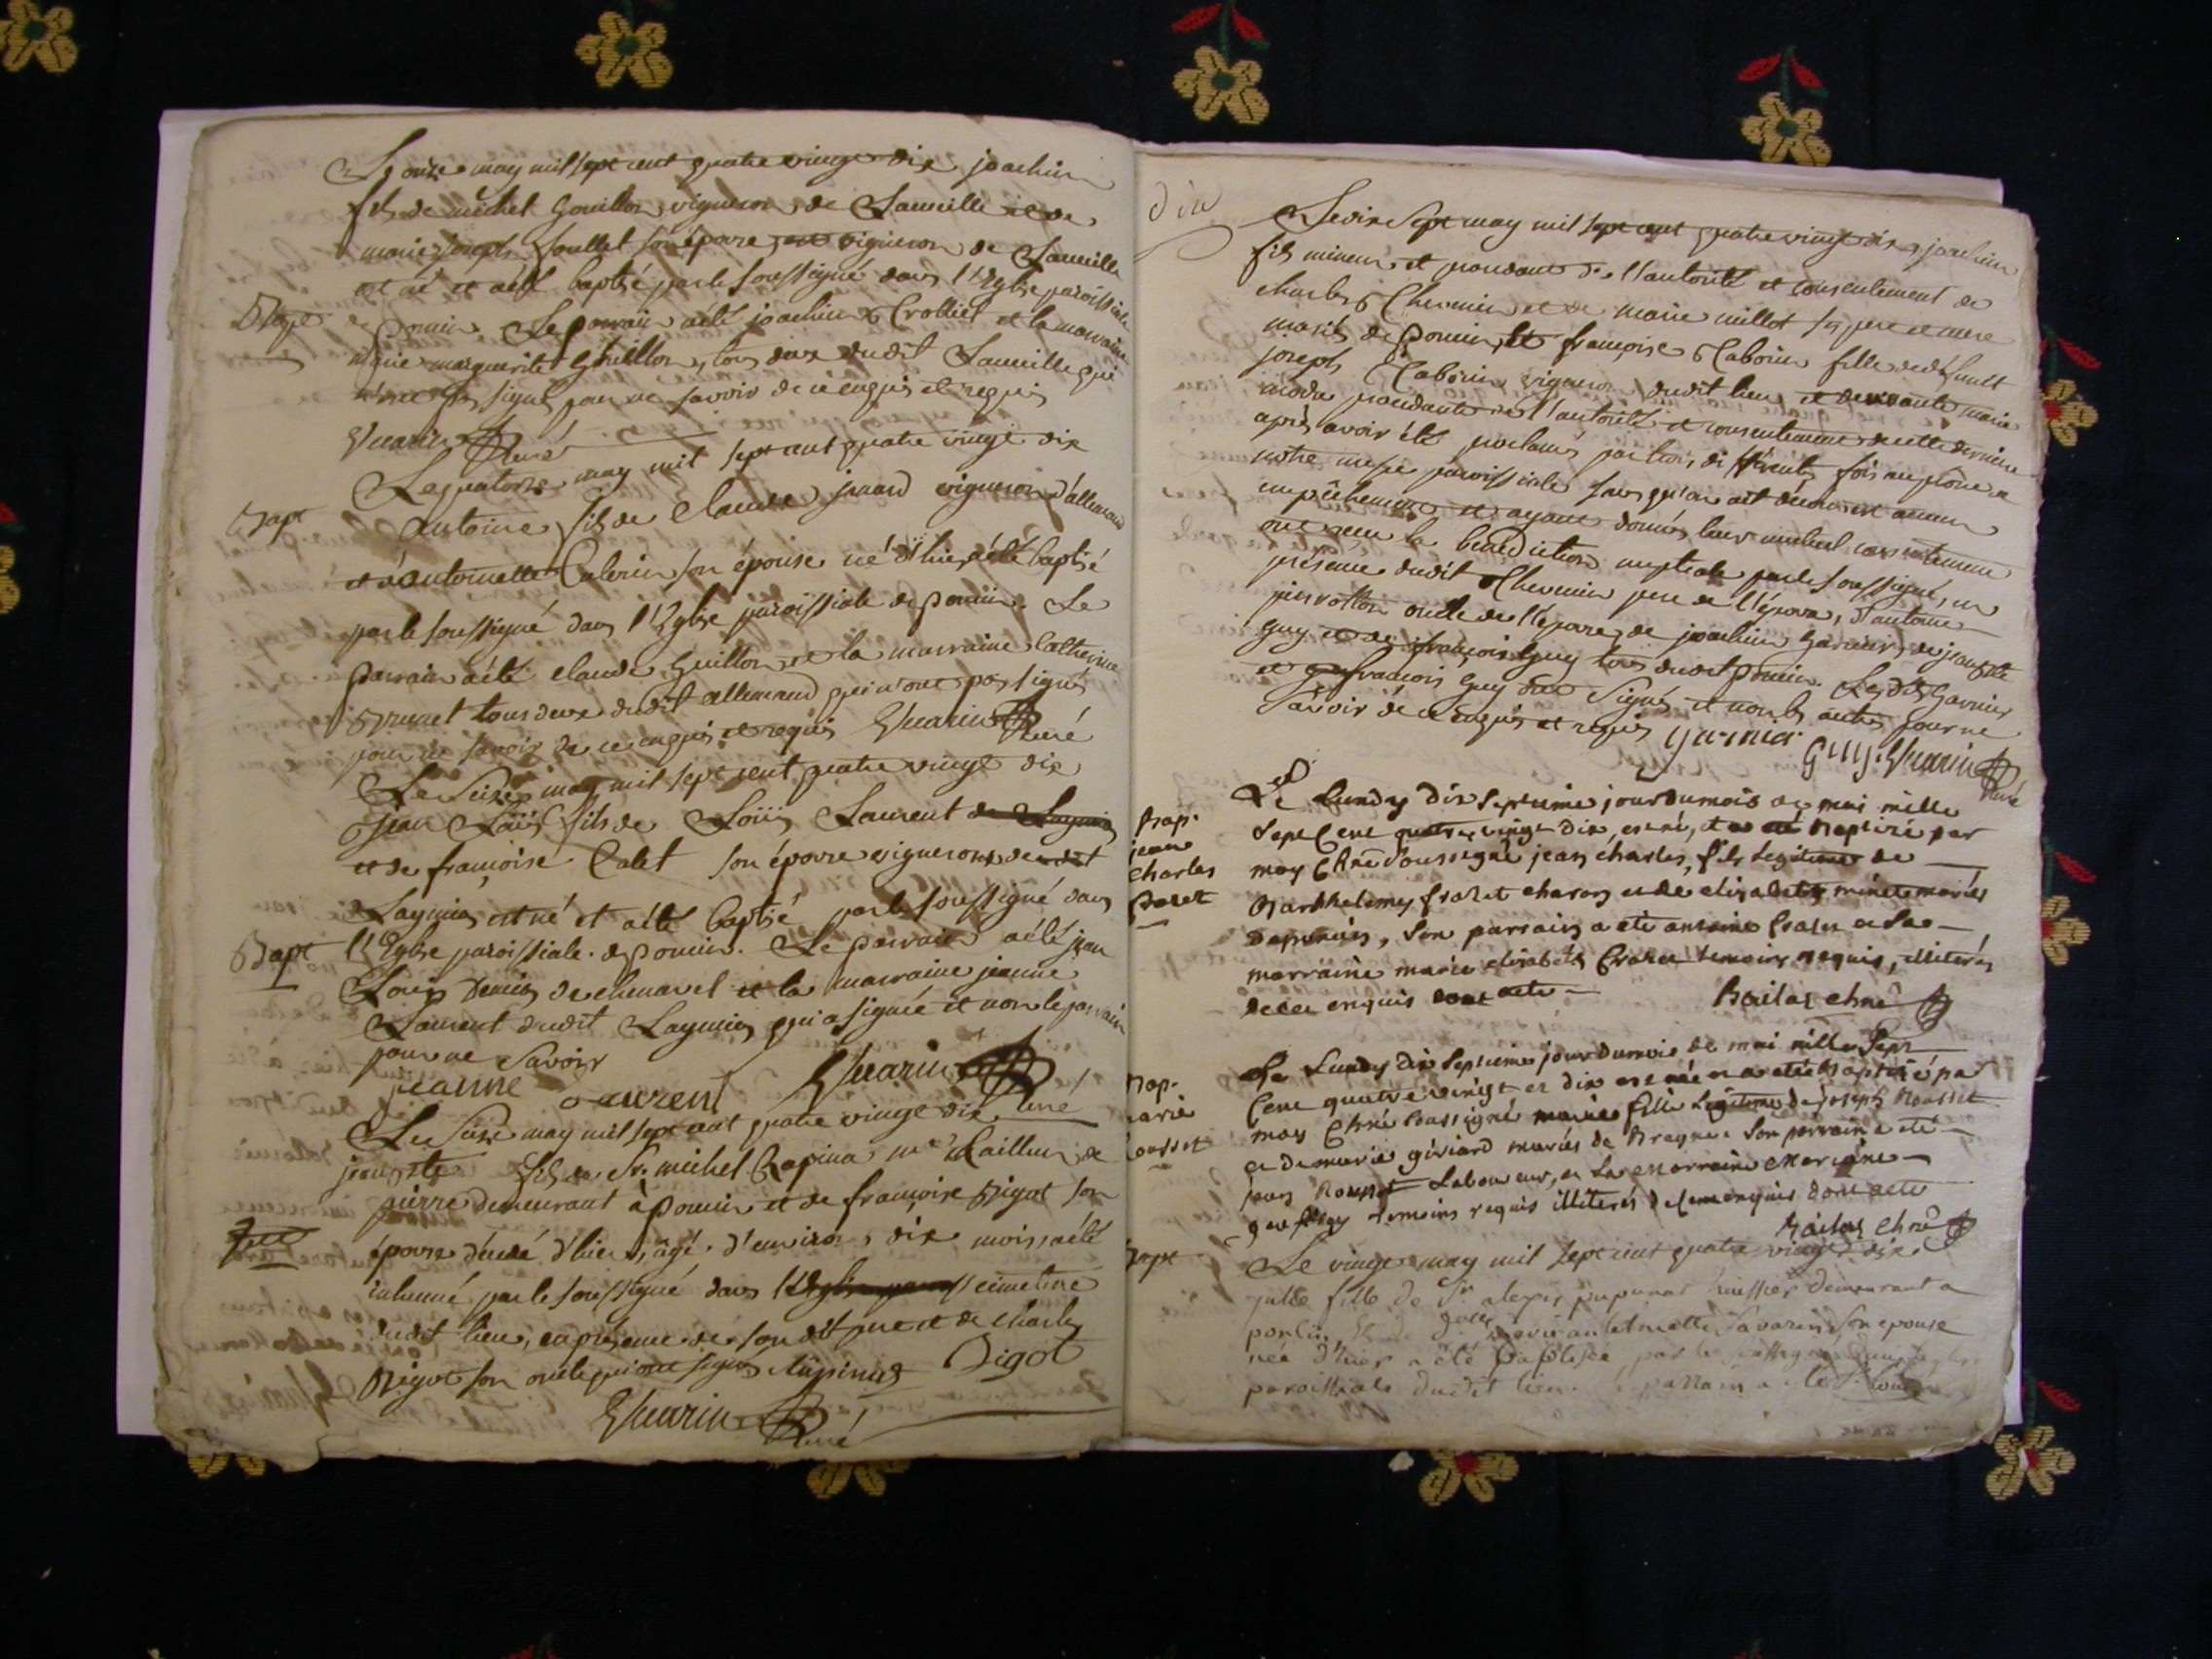 Le onze may mil sept cent quatre vingt dix, joachim
fils de michel Gouillon vigneron de Sauneille et de
marie joseph Soullet son épouse vigneron de Sauneille
est né et a été baptisé par le soussigné dans l'Eglise paroissiale
Bapt
de Poncin. Le parrain a été joachim Crolliet et la marraine
marie marguerite Guillon, tous deux dudit Sauneille qui
n'ont pas signé pour ne savoir de ce enquis et requis
Guarin Curé
Le quatorze may mil sept cent quatre vingt dix
Bapt
Antoine, fils de Claude jnard vigneron d'allemand
et d'antoinette Calerin son épouse né d'hier, a été baptisé
par le soussigné dans l'Eglise paroissiale de Poncin. Le
parrain a été claude Guillon et la marraine Catherine
Brunet tous deux dudit allemand qui n'ont pas signé
pour ne savoir de ce enquis et requis Guarin Curé
Le Seize may mil sept cent quatre vingt dix
Jean Loüis fils de Loüis Laurent de Laymia
et de françoise Calet son épouse vignerons dudit
Laymia est né et a été baptisé par le soussigné dans
Bapt
l'Eglise paroissiale de Poncin. Le parrain a été jean
Loüis Denis de chenavel et la marraine jeanne
Laurent dudit Laymia qui a signé et non le parrain
pour ne Savoir
jeanne Laurent Guarin Curé
Le Seize may mil sept cent quatre vingt dix
jean Bte fils de Sr. michel Rapina me tailleur de
pierre demeurant à Poncin et de françoise Digot son
épouse décédé d'hier, âgé d'environ dix mois a été
inhumé par le soussigné dans l'Eglise cimetière
dudit lieu, en présence de son dit pere et de charles
Digot son oncle qui ont signés Rapina Digot
Guarin Curé
dix
Le dix Sept may mil sept cent quatre vingt dix, joachim
fils mineur et procedant de l'autorité et consentement de
charles Chermin et de marie millot ses pere et mere
mariés de Poncin, et françoise Taborin fille de défunt
joseph Taborin vigneron dudit lieu et de vivante marie
moda procedante de l'autorité et consentement de cette derniere
après avoir été proclamés par trois différentes fois au prône de
notre messe paroissiale sans qu'on ait découvert aucun
empêchement et ayant donnés leur mutuel consentement
ont reçu la benediction nuptiale par le soussigné, en
présence dudit Chermin pere de l'époux, d'antoine
oncle de l'épouse, de joachim Garnier, de jean Bte
Guy et de françois Guy tous dudit Poncin. Lesdits Garnier
et françois Guy ont signés et non les autres pour ne
Savoir de ce enquis et requis Garnier Guy. Guarin
Curé
Bap.
jean
charles
frolet
Le Lundy dix septieme jour du mois de mai mille
Sept Cent quatre vingt dix, est né, et a été Baptisé par
moy Chne Soussigné jean charles, fils legitime de
Barthelemy frolet charon et de elizabeth minet mariés
son parrain a été antoine frolet et sa
marraine marie elizabeth temoins requis, illiterés
de ce enquis dont acte Bailat chne
Bap.
marie
rousset
Le Lundy dix Septieme jour du mois de mai mille Sept
Cent quatre vingt et dix est née et a été Baptisé par
moy Chne Soussigné marie fille Legitime de joseph Rousset
et de marie giriard mariés de Breynes. Son parrain a été
jean Rousset Laboureur, et la Marraine Mariane
geoffray temoins requis illiterés de ce enquis dont acte
Bailat chne
Bapt
Le vingt may mil sept cent quatre vingt dix
julie fille de Sr alexis pupunat huissier demeurant a
poncin, et de marie antoinette Savarin Son epouse
née d'hier a été baptisée par le soussigné dans l'eglise
paroissiale dudit lieu. Le parrain a été